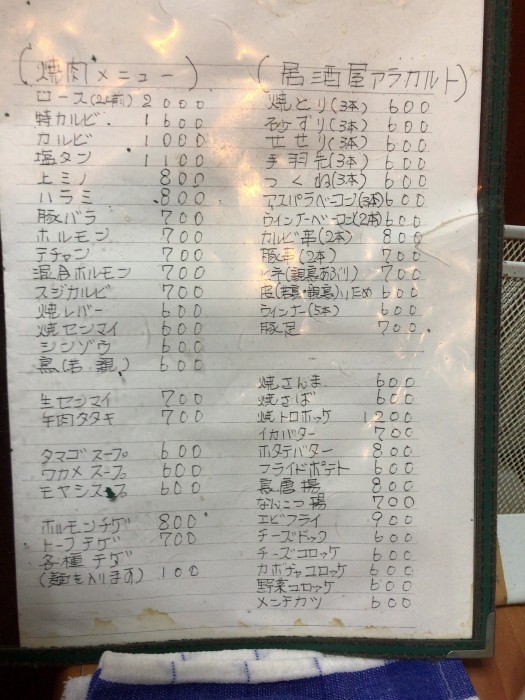 (焼肉メニュー)
ロース(2人前) 2000
特カルビ 1600
カルビ 1000
塩タン 1100
上ミノ 800
ハラミ 800
豚バラ 700
ホルモン 700
テチャン 700
混合ホルモン 700
スジカルビ 700
焼レバー 600
焼センマイ 600
シンゾウ 600
鳥(若、親) 600
生センマイ 700
牛肉タタキ 700
タマゴスープ 600
ワカメスープ 600
モヤシスープ 600
ホルモンチゲ 800
トーフチゲ 700
各種チゲ
(麺も入ります) 100
(居酒屋アラカルト)
焼とり(3本) 600
砂ずり(3本) 600
せせり(3本) 600
手羽先(3本) 600
つくね(3本) 600
アスパラベーコン(3本) 600
ウインナーベーコン(2本) 600
カルビ串(2本) 800
豚串(2本) 700
ヒネ(親鳥あぶり) 700
鳥(若鳥・親鳥)いため 600
ウインナー(5本) 600
豚足 700
焼さんま 600
焼さば 600
焼トロホッケ 1200
イカバター 700
ホタテバター 800
フライドポテト 600
鳥唐揚 800
なんこつ揚 700
エビフライ 900
チーズドック 600
チーズコロッケ 600
カボチャコロッケ 600
野菜コロッケ 600
メンチカツ 600